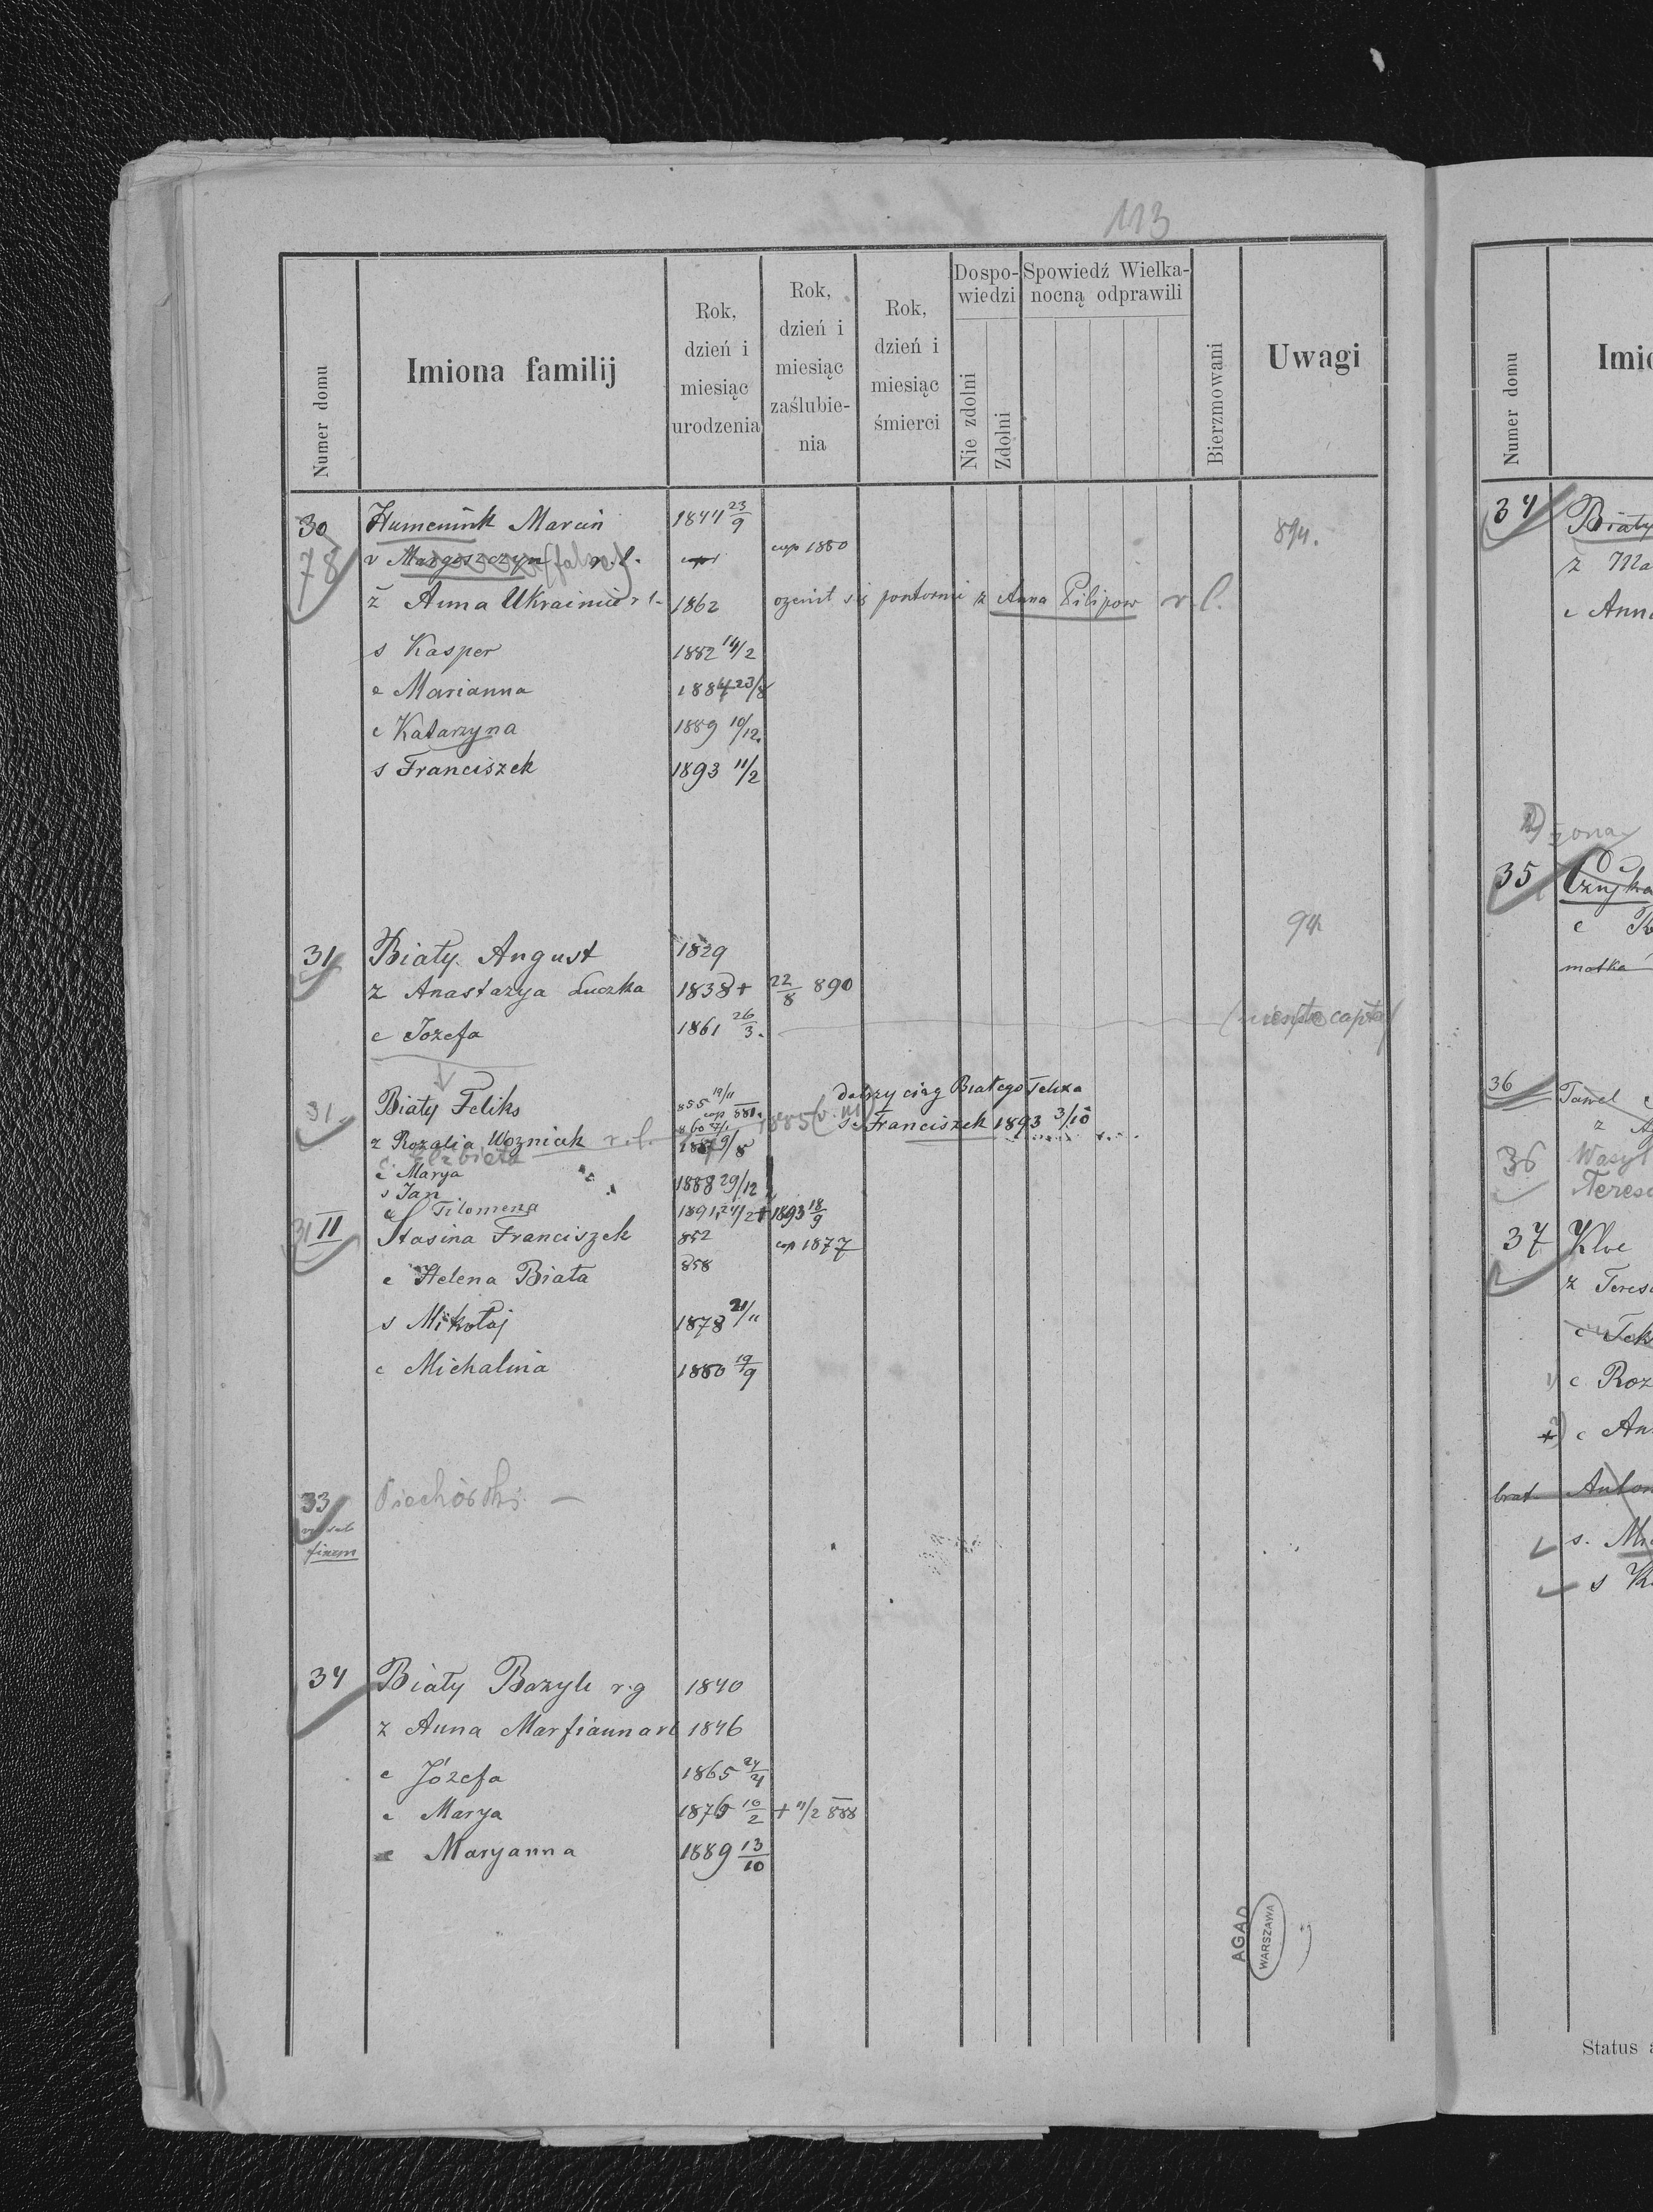 113
Numer domu
Imiona familij
Rok, dzień i miesiąc urodzenia
Rok, dzień i miesiąc zaślubienia
Rok, dzień i miesiąc śmierci
Dospowiedzi
Nie zdolni
Zdolni
Spowiedź Wielkanocną odprawili
Bierzmowani
Uwagi
30 Humeniuk Marcin 1844 23/9 894.
78 v Margoszczyn (falso) r. l. cop 1880
ż Anna Ukrainiec r l. 1862 ożenił się powtornie z Anna Pilipow r. l.
s Kasper 1882 14/2
c Marianna 1884 23/8
c Katarzyna 1889 10/12
s Franciszek 1893 11/2
31 Biały August 1829 94
z Anastazya Luczka 1838 + 22/8 890
c Jozefa 1861 26/3. capta
31. Biały Feliks 855 19/11 cop 881. dalszy ciąg Białego Felixa
z Rozalia Wozniak r. l. 860 1885 s Franciszek 1893 3/10
Elżbieta 9/8
c Marya
s Jan 1888 29/12
c Filomena 1891 24/2 + 1893 18/9
31 II Stasina Franciszek 852 cop 1877
c Helena Biała 858
s Mikołaj 1878 21/11
c Michalina 1880 19/9
33 Piechorski —
finem
34 Biały Bazyli r. g 1840
z Anna Marfianna rl 1846
c Józefa 1865 24/4
c Marya 1876 10/2 + 11/2 888
c Maryanna 1889 13/10
AGAD
WARSZAWA
Numer domu
Imio
34 Biały
ż Ma
c Anna
żona
35
c
matka
36 Pawel
36 Wasyl
Teres
37 Klve
z Teres
c Tek
1) c Roz
c An
brat Anton
s. Mi
s K
Status